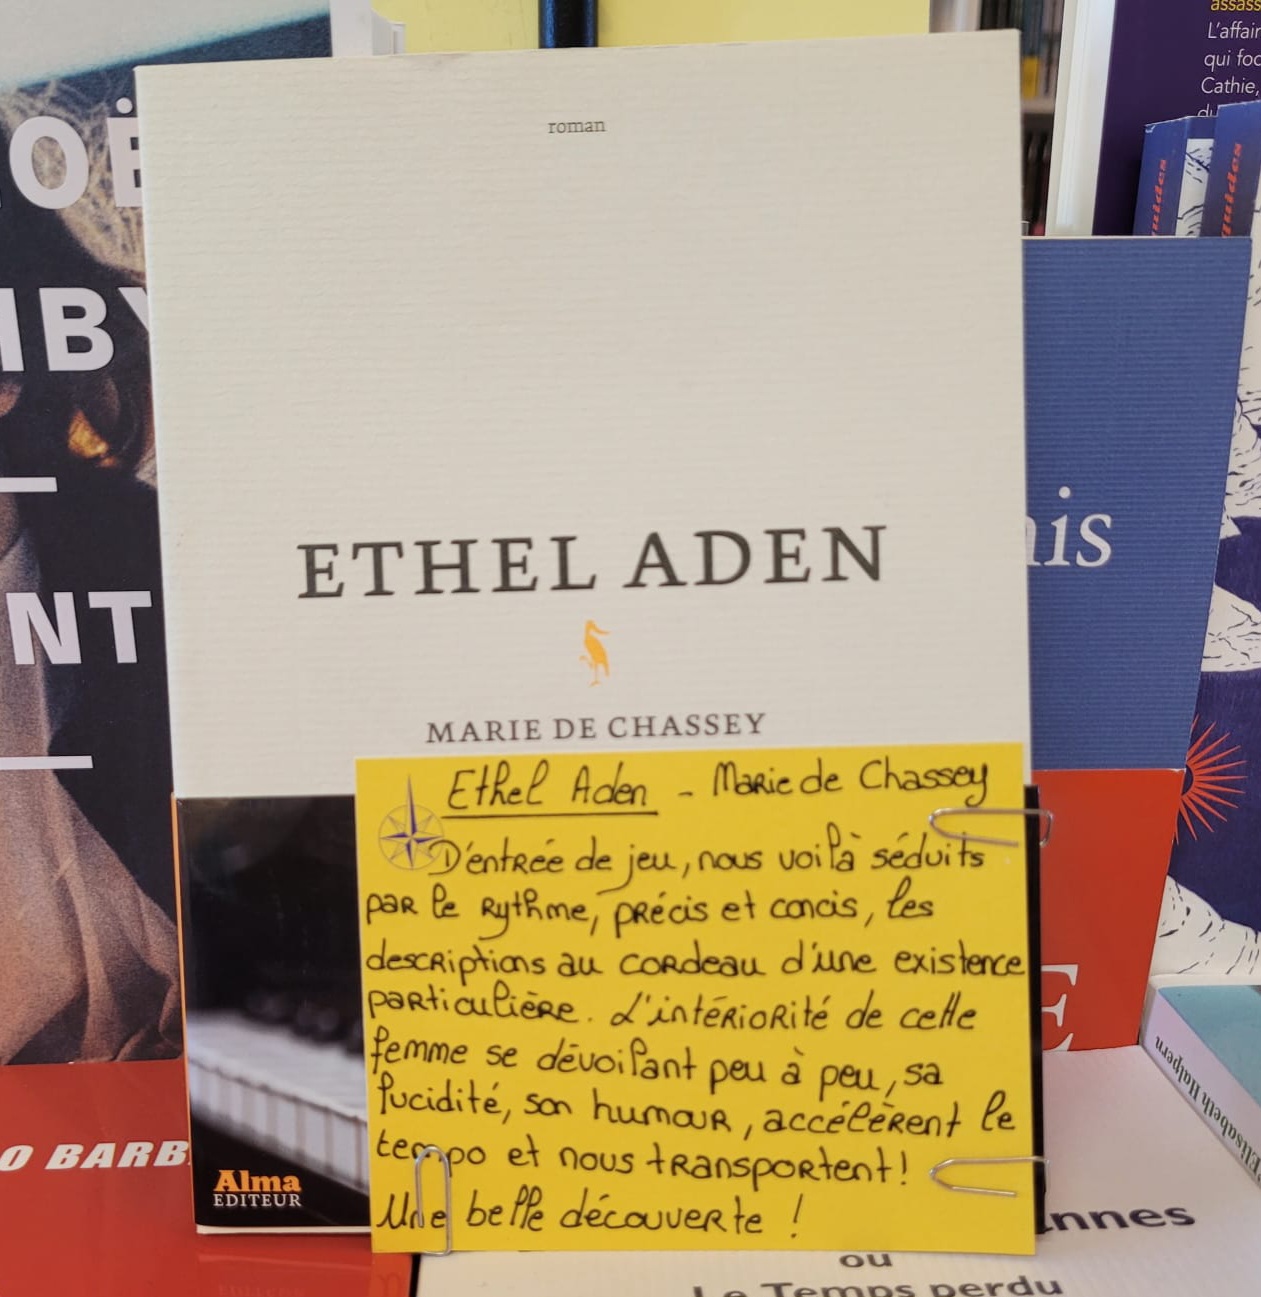 roman
ETHEL ADEN
MARIE DE CHASSEY
Ethel Aden - Marie de Chassey
D'entrée de jeu, nous voilà séduits
par le rythme, précis et concis, les
descriptions au cordeau d'une existence
particulière. L'intériorité de cette
femme se dévoilant peu à peu, sa
lucidité, son humour, accélèrent le
tempo et nous transportent !
Une belle découverte !
Alma
EDITEUR
NT
O BARB
L'affair
qui foc
Cathie,
guides
guides
is
E
Elisabeth Halpern
nnes
ou
Le Temps perdu